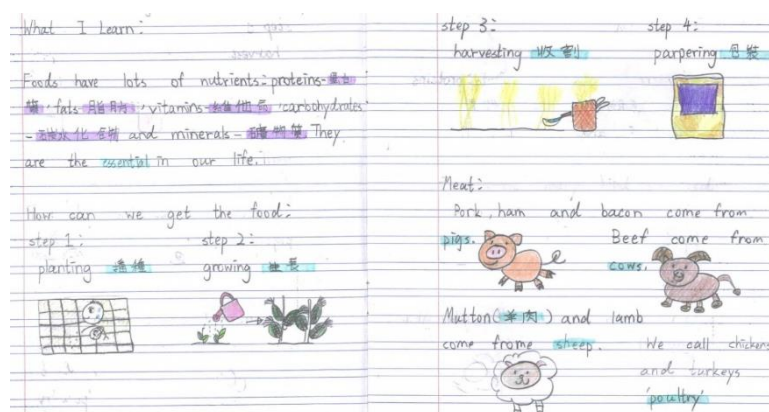 What I Learn:
Foods have lots of nutrients: proteins-蛋白
質, fats-脂肪, vitamins-維他命, carbohydrates
-碳水化合物 and minerals-礦物質. They
are the essential in our life.
How can we get the food:
step 1:
planting
step 2:
growing 生長
step 3:
harvesting 收割
step 4:
parpering 包裝
Meat:
Pork, ham and bacon come from
pigs.
Beef come from
cows.
Mutton(羊肉) and lamb
come frome sheep.
We call chickens
and turkeys
'poultry'